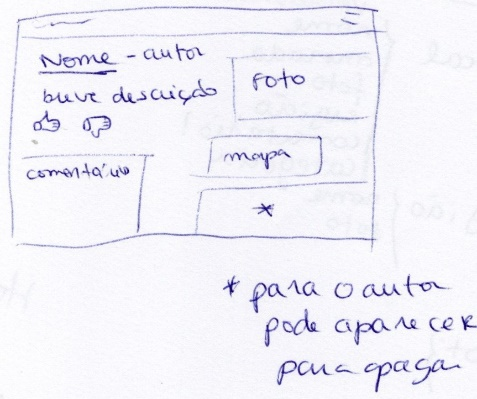 Nome - autor
breve descrição
foto
mapa
comentário
*
* para o autor
pode aparecer
para apagar